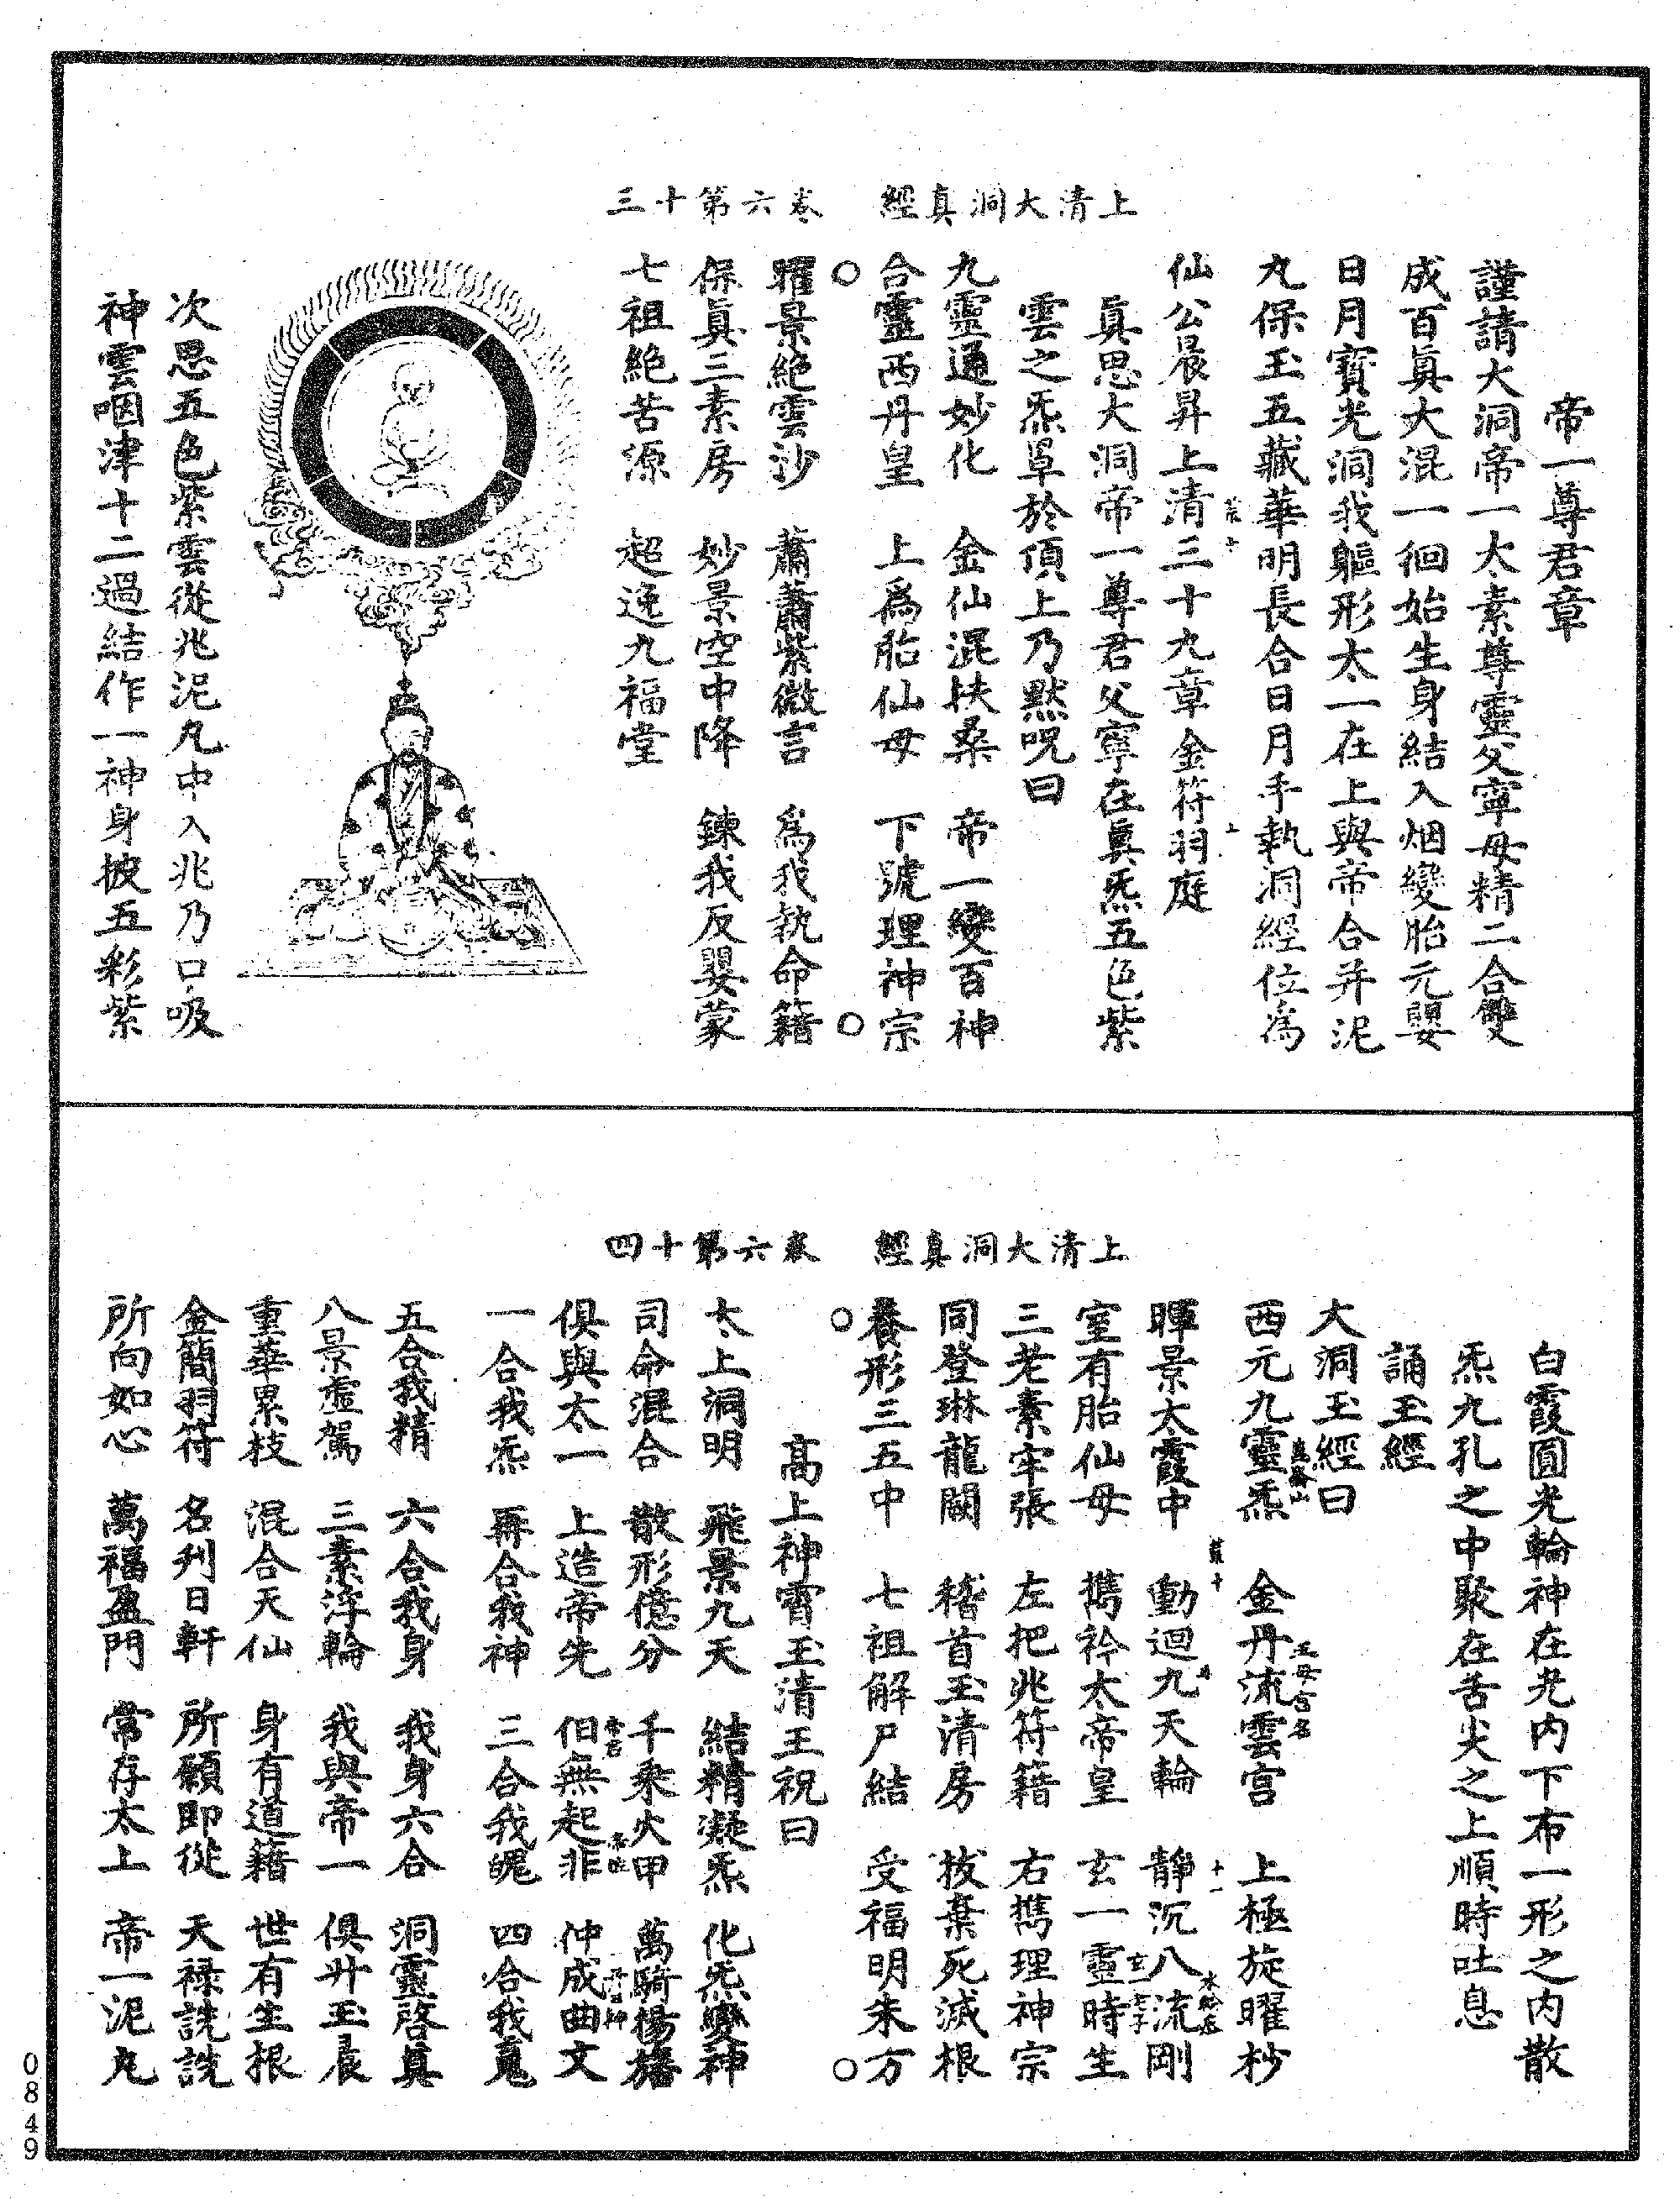 上清大洞真經　卷六第十三
帝一尊君章
謹請大洞帝一大素尊靈父寧母精二合雙
成百真大混一徊始生身結入烟變胎元嬰
日月寶光洞我軀形太一在上與帝合并泥
丸保玉五藏華明長合日月手執洞經位為
仙公晨昇上清三十九章金符羽庭
真思大洞帝一尊君父寧在真炁五色紫
雲之炁罩於頂上乃默呪曰
九靈通妙化　金仙混扶桑　帝一變百神
合靈西丹皇　上為胎仙母　下號理神宗
○　○
曜景絶雲沙　蕭蕭紫微言　為我執命籍
保真三素房　妙景空中降　鍊我反嬰蒙
七祖絶苦源　超迤九福堂
次思五色紫雲從兆泥丸中入兆乃口吸
神雲咽津十二過結作一神身披五彩紫
上清大洞真經　卷六第十四
白霞圓光輪神在光内下布一形之内散
炁九孔之中聚在舌尖之上順時吐息
誦玉經
大洞玉經曰
西元九靈炁　金丹流雲宫　上極旋曜杪
暉景太霞中　動迴九天輪　靜沉八流剛
室有胎仙母　攜衿太帝皇　玄一靈時生
三老素牢張　左把兆符籍　右攜理神宗
同登琳龍闕　稽首玉清房　拔棄死滅根
養形三五中　七祖解尸結　受福明朱方
○　○
高上神霄玉清王祝曰
太上洞明　飛景九天　結精凝炁　化炁變神
司命混合　散形億分　千乘火甲　萬騎揚旛
俱與太一　上造帝先　伯無起非　仲成曲文
一合我炁　再合我神　三合我魄　四合我䰟
五合我精　六合我身　我身六合　洞靈啓真
八景虛駕　三素浮輪　我與帝一　俱升玉晨
重華累枝　混合天仙　身有道籍　世有生根
金簡羽符　名刋日軒　所願即從　天禄詵詵
所向如心　萬福盈門　常存太上　帝一泥丸
0849